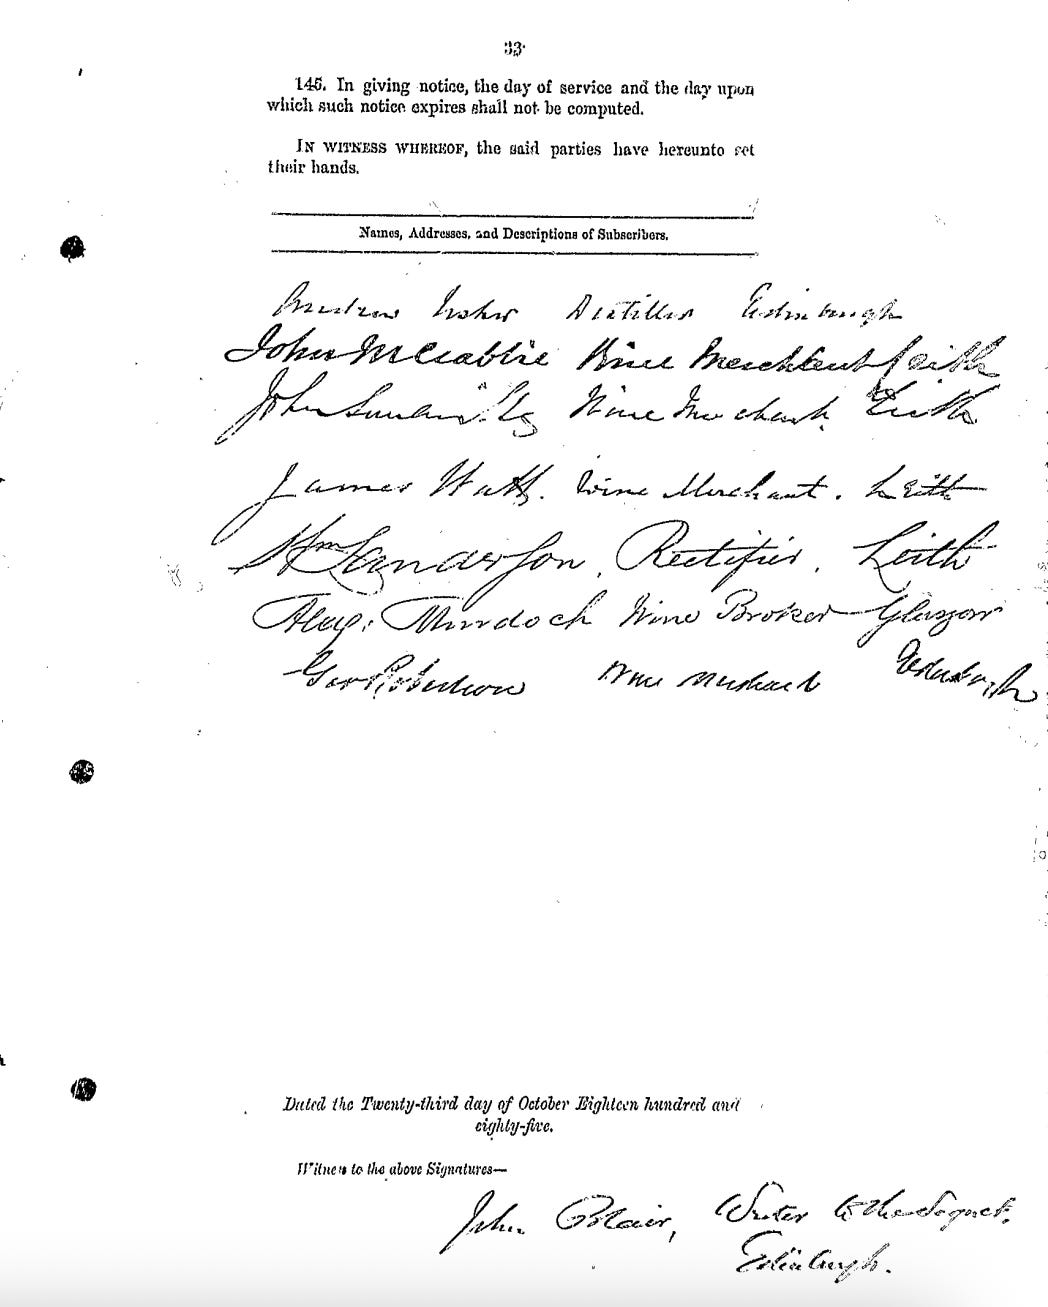 33
146. In giving notice, the day of service and the day upon
which such notice expires shall not be computed.
IN WITNESS WHEREOF, the said parties have hereunto set
their hands.
Names, Addresses, and Descriptions of Subscribers.
Andrew Usher Distiller Edinburgh
John M Crabbie Wine Merchant Leith
John Wine Merchant Leith
James Watt. Wine Merchant. Leith
Wm Sanderson. Rectifier. Leith
Alexr. Murdoch Wine Broker Glasgow
Geo Robertson Wine Merchant Edinburgh
Dated the Twenty-third day of October Eighteen hundred and
eighty-five.
Witness to the above Signatures—
John Blair, Writer to the Signet.
Edinburgh.